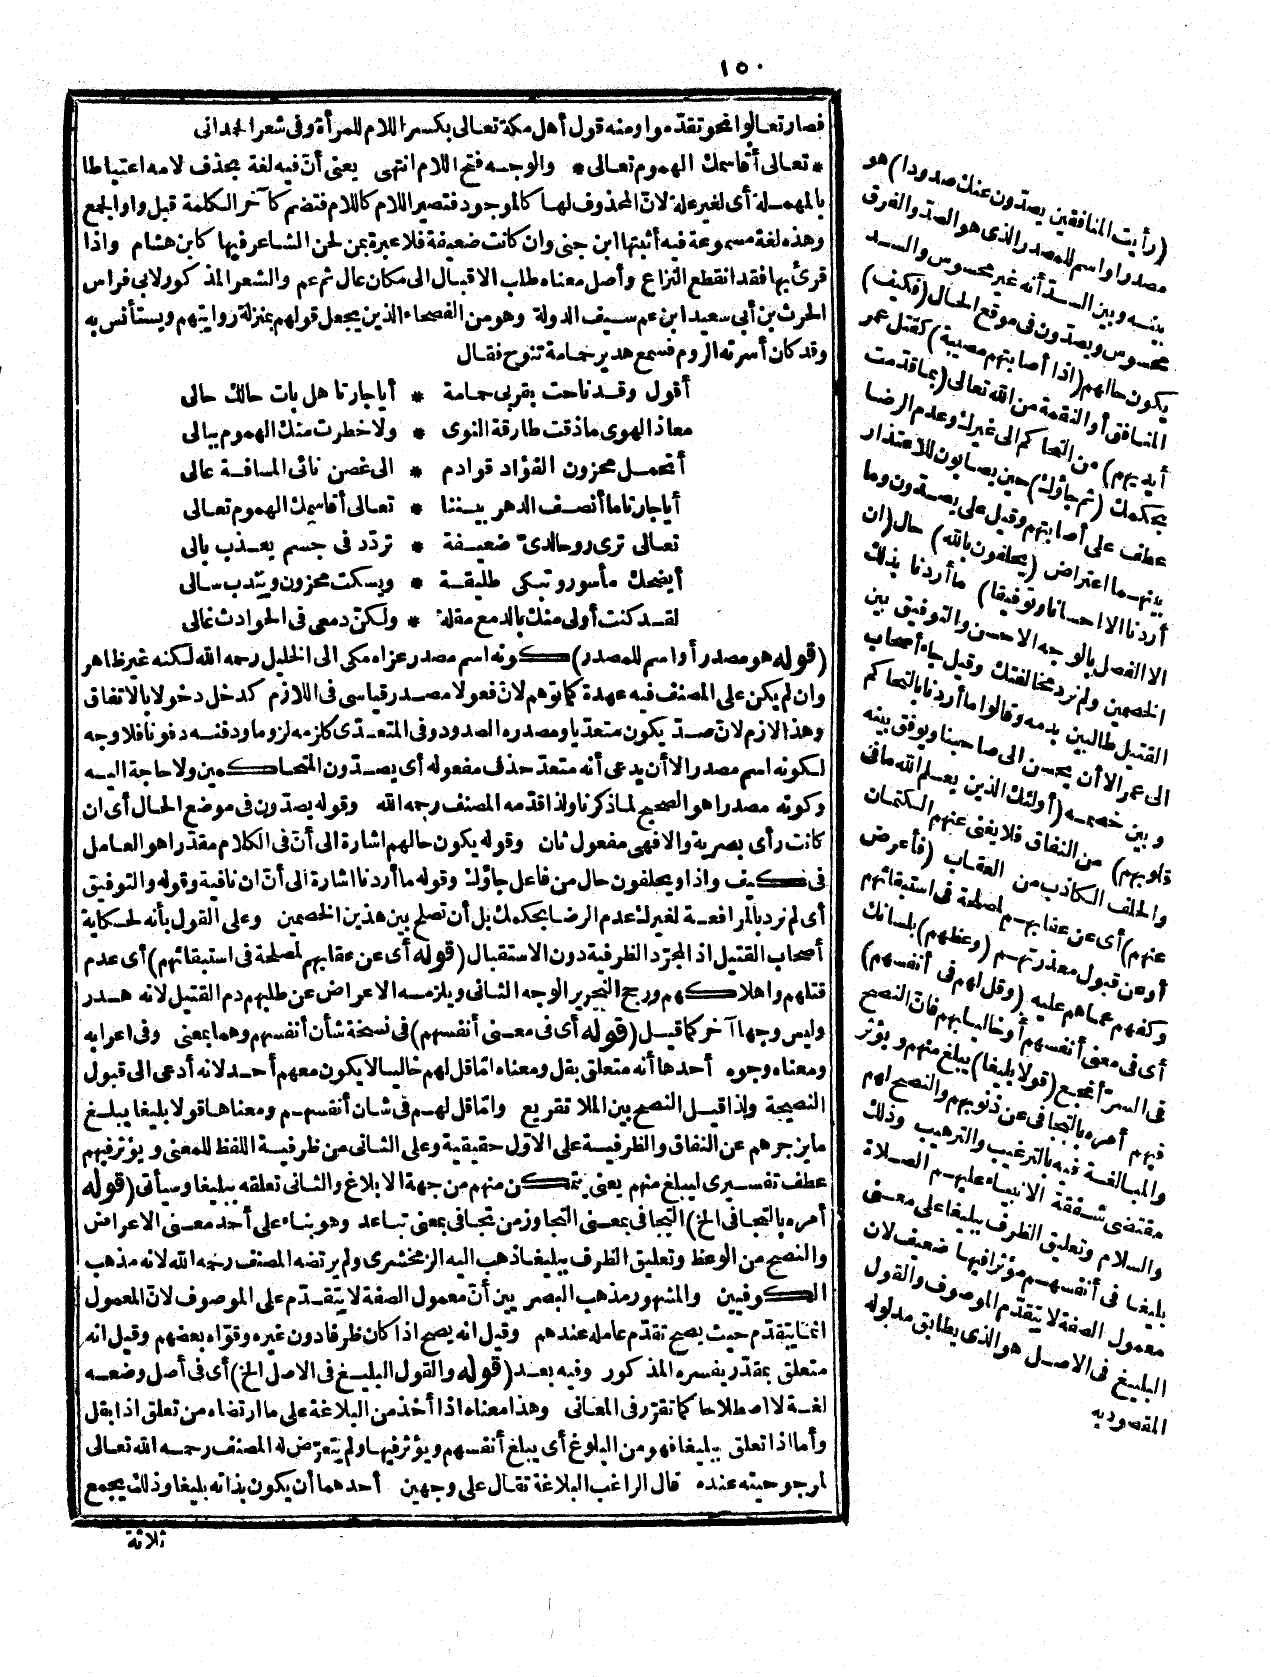 ١٥٠
فصار تعالوا نحو تقدّموا ومنه قول أهل مكة تعالى بكسر اللام للمرأة وفى شعر الحمدانى
* تعالى أقاسمك الهموم تعالى * والوجه فتح اللام انتهى يعنى أنّ فيه لغة بحذف لامه اعتباطا
بالمهملة أى لغير علة لانّ المحذوف لها كالموجود فتصير اللام كاللام فتضم كآخر الكلمة قبل واو الجمع
وهذه لغة مسموعة فيه أثبتها ابن جنى وان كانت ضعيفة فلا عبرة بمن لحن الشاعر فيها كابن هشام واذا
قرئ بها فقد انقطع النزاع وأصل معناه طلب الاقبال الى مكان عال ثم عم والشعر المذكور لابى فراس
الحرث بن أبى سعيد ابن عم سيف الدولة وهو من الفصحاء الذين يجعل قولهم بمنزلة روايتهم ويستأنس به
وقد كان أسرته الروم فسمع هدير حمامة تنوح فقال
أقول وقد ناحت بقربى حمامة * أيا جارتا هل بات حالك حالى
معاذ الهوى ما ذقت طارقة النوى * ولا خطرت منك الهموم ببالى
أتحمل محزون الفؤاد قوادم * الى غصن نائى المسافة عالى
أيا جارتا ما أنصف الدهر بيننا * تعالى أقاسمك الهموم تعالى
تعالى ترى روحا لدىّ ضعيفة * تردّد فى جسم يعذب بالى
أيضحك مأسور وتبكى طليقة * ويسكت محزون ويندب سالى
لقد كنت أولى منك بالدمع مقلة * ولكنّ دمعى فى الحوادث غالى
(قوله هو مصدر أو اسم للمصدر) كونه اسم مصدر عزاه مكى الى الخليل رحمه الله لكنه غير ظاهر
وان لم يكن على المصنف فيه عهدة كما توهم لانّ فعولا مصدر قياسى فى اللازم كدخل دخولا بالاتفاق
وهذا لازم لانّ صدّ يكون متعديا ومصدره الصدود وفى المتعدى كلزمه لزوما ودفنه دفونا فلا وجه
لكونه اسم مصدر الا أن يدعى أنه متعد حذف مفعوله أى يصدون المتحاكمين ولا حاجة اليه
وكونه مصدرا هو الصحيح لما ذكرنا ولذا قدمه المصنف رحمه الله وقوله يصدّون فى موضع الحال أى ان
كانت رأى بصرية والا فهى مفعول ثان وقوله يكون حالهم اشارة الى أنّ فى الكلام مقدّرا هو العامل
فى كيف واذا ويحلفون حال من فاعل جاؤك وقوله ما أردنا اشارة الى أنّ ان نافية وقوله والتوفيق
أى لم نرد بالمرافعة لغيرك عدم الرضا بحكمك بل أن تصلح بين هذين الخصمين وعلى القول بأنه لحكاية
أصحاب القتيل اذ المجرّد الظرفية دون الاستقبال (قوله أى عن عقابهم لمصلحة فى استبقائهم) أى عدم
قتلهم واهلاكهم ورجح النحرير الوجه الثانى ويلزمه الاعراض عن طلبهم دم القتيل لانه هدر
وليس وجها آخر كما قيل (قوله أى فى معنى أنفسهم) فى نسخة شأن أنفسهم وهما بمعنى وفى اعرابه
ومعناه وجوه أحدها أنه متعلق بقل ومعناه امّا قل لهم خاليا لا يكون معهم أحد لانه أدعى الى قبول
النصيحة ولذا قيل النصح بين الملا تقريع وامّا قل لهم فى شان أنفسهم ومعناها قولا بليغا يبلغ
ما يزجرهم عن النفاق والظرفية على الاوّل حقيقية وعلى الثانى من ظرفية اللفظ للمعنى ويؤثر فيهم
عطف تفسيرى ليبلغ منهم يعنى يتمكن منهم من جهة الابلاغ والثانى تعلقه ببليغا وسيأتى (قوله
أمره بالتجافى الخ) التجافى بمعنى التجاوز من تجافى بمعنى تباعد وهو بناء على أحد معنى الاعراض
والنصح من الوعظ وتعليق الظرف ببليغا ذهب اليه الزمخشرى ولم يرتضه المصنف رحمه الله لانه مذهب
الكوفيين والمشهور مذهب البصريين أنّ معمول الصفة لا يتقدّم على الموصوف لانّ المعمول
انما يتقدّم حيث يصح تقدّم عامله عندهم وقيل انه يصح اذا كان ظرفا دون غيره وقوّاه بعضهم وقيل انه
متعلق بمقدّر يفسره المذكور وفيه بعد (قوله والقول البليغ فى الاصل الخ) أى فى أصل وضعه
لغة لا اصطلاحا كما تقرّر فى المعانى وهذا معناه اذا أخذ من البلاغة على ما ارتضاه من تعلق اذا بقل
وأما اذا تعلق ببليغا فهو من البلوغ أى يبلغ أنفسهم ويؤثر فيها ولم يتعرّض له المصنف رحمه الله تعالى
لمرجوحيته عنده قال الراغب البلاغة تقال على وجهين أحدهما أن يكون بذاته بليغا وذلك بجمع
ثلاثة
(رأيت المنافقين يصدّون عنك صدودا) هو
مصدر أو اسم للمصدر الذى هو الصدّ والفرق
بينه وبين السدّ أنه غير محسوس والسد
محسوس ويصدّون فى موقع الحال (فكيف)
يكون حالهم (اذا أصابتهم مصيبة) كقتل عمر
المنافق أو النقمة من الله تعالى (بما قدمت
أيديهم) من التحاكم الى غيرك وعدم الرضا
بحكمك (ثم جاؤك) حين يصابون للاعتذار
عطف على أصابتهم وقيل على يصدّون وما
بينهما اعتراض (يحلفون بالله) حال (ان
أردنا الا احسانا وتوفيقا) ما أردنا بذلك
الا الفصل بالوجه الاحسن والتوفيق بين
الخصمين ولم نرد مخالفتك وقيل جاء أصحاب
القتيل طالبين بدمه وقالوا ما أردنا بالتحاكم
الى عمر الا أن يحسن الى صاحبنا ويوفق بينه
وبين خصمه (أولئك الذين يعلم الله ما فى
قلوبهم) من النفاق فلا يغنى عنهم الكتمان
والحلف الكاذب من العقاب (فأعرض
عنهم) أى عن عقابهم لمصلحة فى استبقائهم
أو عن قبول معذرتهم (وعظهم) بلسانك
وكفهم عما هم عليه (وقل لهم فى أنفسهم)
أى فى معنى أنفسهم أو خاليا بهم فانّ النصح
فى السرّ أنجع (قولا بليغا) يبلغ منهم ويؤثر
فيهم أمره بالتجافى عن ذنوبهم والنصح لهم
والمبالغة فيه بالترغيب والترهيب وذلك
مقتضى شفقة الانبياء عليهم الصلاة
والسلام وتعليق الظرف ببليغا على معنى
بليغا فى أنفسهم مؤثرا فيها ضعيف لان
معمول الصفة لا يتقدّم الموصوف والقول
البليغ فى الاصل هو الذى يطابق مدلوله
المقصود به